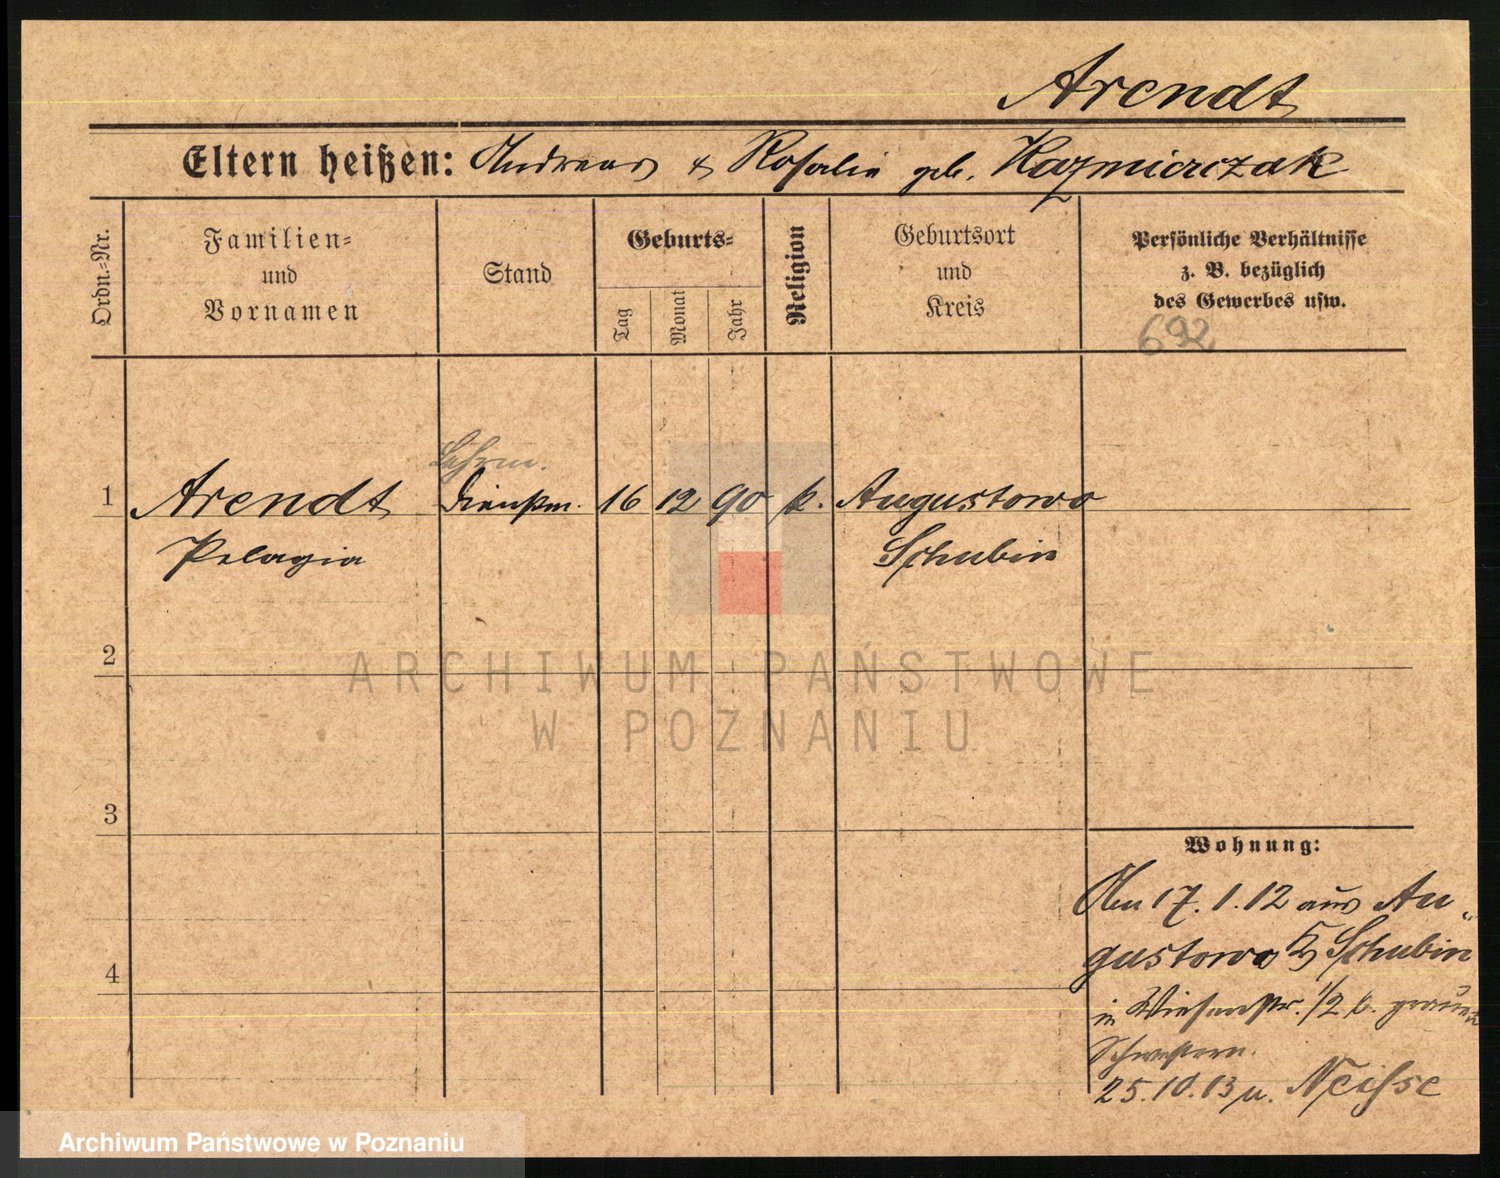 Arendt
Eltern heißen: Andreas & Rosalie geb. Kazmierczak
Ordn.-Nr.
Familien- und Vornamen
Stand
Geburts-
Tag
Monat
Jahr
Religion
Geburtsort und Kreis
Persönliche Verhältnisse
z. B. bezüglich
des Gewerbes usw.
692
Lehrin.
1 Arendt Dienstm. 16 12 90 k. Augustowo
Pelagia Schubin
2
3
4
ARCHIWUM PAŃSTWOWE
W POZNANIU
Wohnung:
Am 17.1.12 aus Au-
gustowo Schubin
in Wiesenstr. 1/2 b. grauen
Schwestern.
25.10.13 n. Neisse
Archiwum Państwowe w Poznaniu